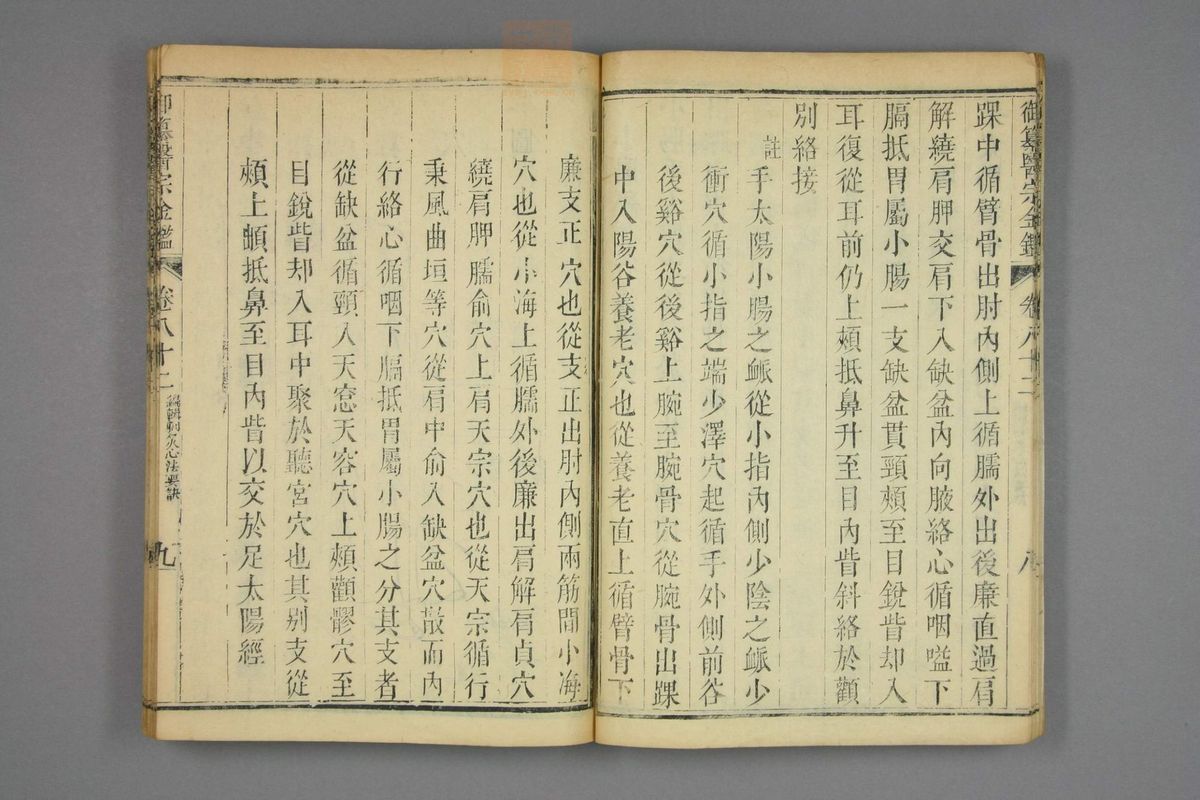 御纂醫宗金鑑 卷八十二 八
踝中循臂骨出肘內側上循臑外出後廉直過肩
解繞肩胛交肩下入缺盆內向腋絡心循咽嗌下
膈抵胃屬小腸一支缺盆貫頸頰至目銳眥却入
耳復從耳前仍上頰抵鼻升至目內眥斜絡於顴
別絡接
註
手太陽小腸之脈從小指內側少陰之脈少
衝穴循小指之端少澤穴起循手外側前谷
後谿穴從後谿上腕至腕骨穴從腕骨出踝
中入陽谷養老穴也從養老直上循臂骨下
廉支正穴也從支正出肘內側兩筋間小海
穴也從小海上循臑外後廉出肩解肩貞穴
繞肩胛臑俞穴上肩天宗穴也從天宗循行
秉風曲垣等穴從肩中俞入缺盆穴散而內
行絡心循咽下膈抵胃屬小腸之分其支者
從缺盆循頸入天窓天容穴上頰顴髎穴至
目銳眥却入耳中聚於聽宮穴也其别支從
頰上䪼抵鼻至目內眥以交於足太陽經
御纂醫宗金鑑 卷八十二 編輯刺灸心法要訣 九